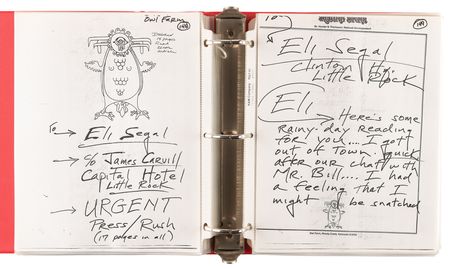 Owl Farm
148
→ Eli Segal
→ c/o James Carvill
Capital Hotel
Little Rock
→ URGENT
Press/Rush
(17 pages in all)
149
Eli Segal
Clinton Hq.
Little Rock
Eli,
Here's some
rainy-day reading
for you.... I gott
out of Town quick
after our chat with
Mr. Bill.... I had
a feeling that I
might be snatched